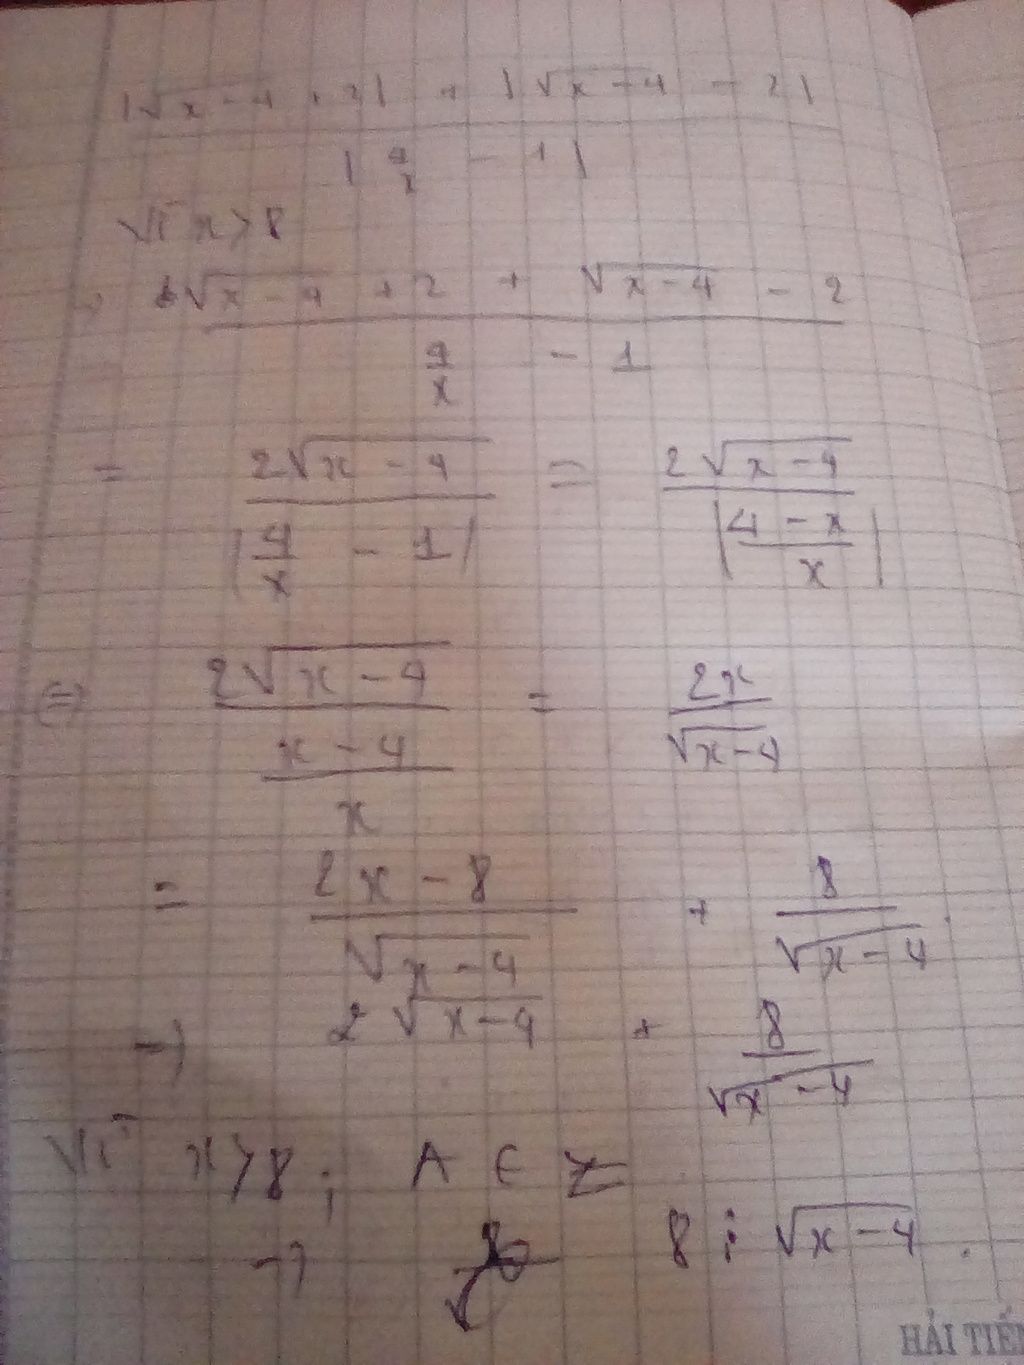 |√x-4 + 2| + |√x-4 - 2|
|4/x - 1|
Vì x>8
√x-4 + 2 + √x-4 - 2
4/x - 1
= 2√x-4 / |4/x - 1| = 2√x-4 / |4-x/x|
(=) 2√x-4 / x-4/x = 2x/√x-4
= 2x-8/√x-4 + 8/√x-4.
→ 2√x-4 + 8/√x-4
Vì x>8; A ∈ Z
→ 8 ⋮ √x-4.
HẢI TIẾN